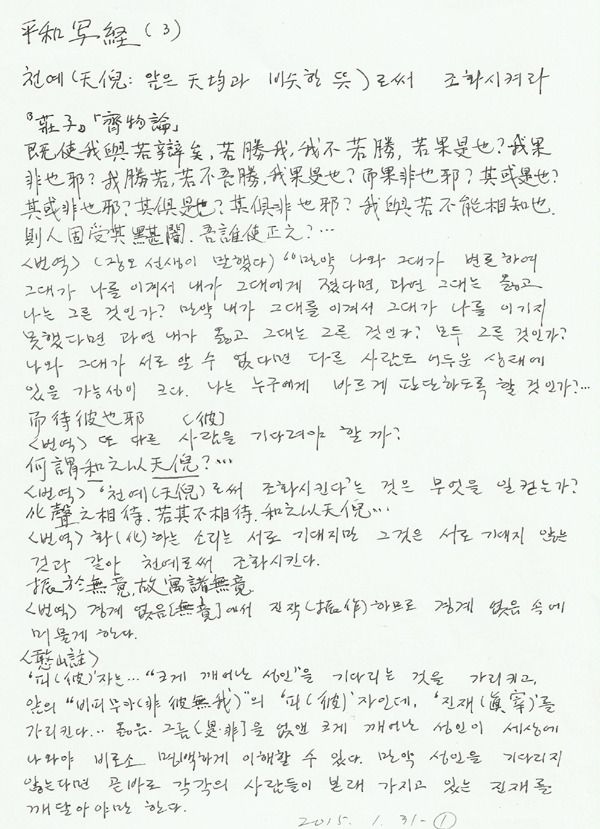 平和写経 (3)
천예(天倪: 앞은 天均과 비슷한 뜻)로써 조화시켜라
『莊子』「齊物論」
既使我與若辯矣, 若勝我, 我不若勝, 若果是也? 我果
非也耶? 我勝若, 若不吾勝, 我果是也? 而果非也耶? 其或是也?
其或非也耶? 其俱是也? 其俱非也耶? 我與若不能相知也.
則人固受其黮闇. 吾誰使正之?…
<번역> (장오 선생이 말했다) "만약 나와 그대가 변론하여
그대가 나를 이겨서 내가 그대에게 졌다면, 과연 그대는 옳고
나는 그른 것인가? 만약 내가 그대를 이겨서 그대가 나를 이기지
못했다면 과연 내가 옳고 그대는 그른 것인가? 모두 그른 것인가?
나와 그대가 서로 알 수 없다면 다른 사람도 어두운 상태에
있을 가능성이 크다. 나는 누구에게 바르게 판단하도록 할 것인가?…
而待彼也耶 [彼]
<번역> 또 다른 사람을 기다려야 할까?
何謂和之以天倪?…
<번역> '천예(天倪)로써 조화시킨다'는 것은 무엇을 일컫는가?
化聲之相待, 若其不相待. 和之以天倪…
<번역> 화(化)하는 소리는 서로 기대지만 그것은 서로 기대지 않는
것과 같아 천예로써 조화시킨다.
振於無竟, 故寓諸無竟.
<번역> 경계 없음[無竟]에서 진작(振作)하므로 경계 없음 속에
머물게 한다.
<憨山註>
'피(彼)'자는… "크게 깨어난 성인"을 기다리는 것을 가리키고,
앞의 "비피무아(非彼無我)"의 '피(彼)'자인데, '진재(眞宰)'를
가리킨다… 옳음·그름[是·非]을 없앤 크게 깨어난 성인이 세상에
나와야 비로소 명백하게 이해할 수 있다. 만약 성인을 기다리지
않는다면 곧바로 각각의 사람들이 본래 가지고 있는 진재를
깨달아야만 한다.
2015. 1. 31-①